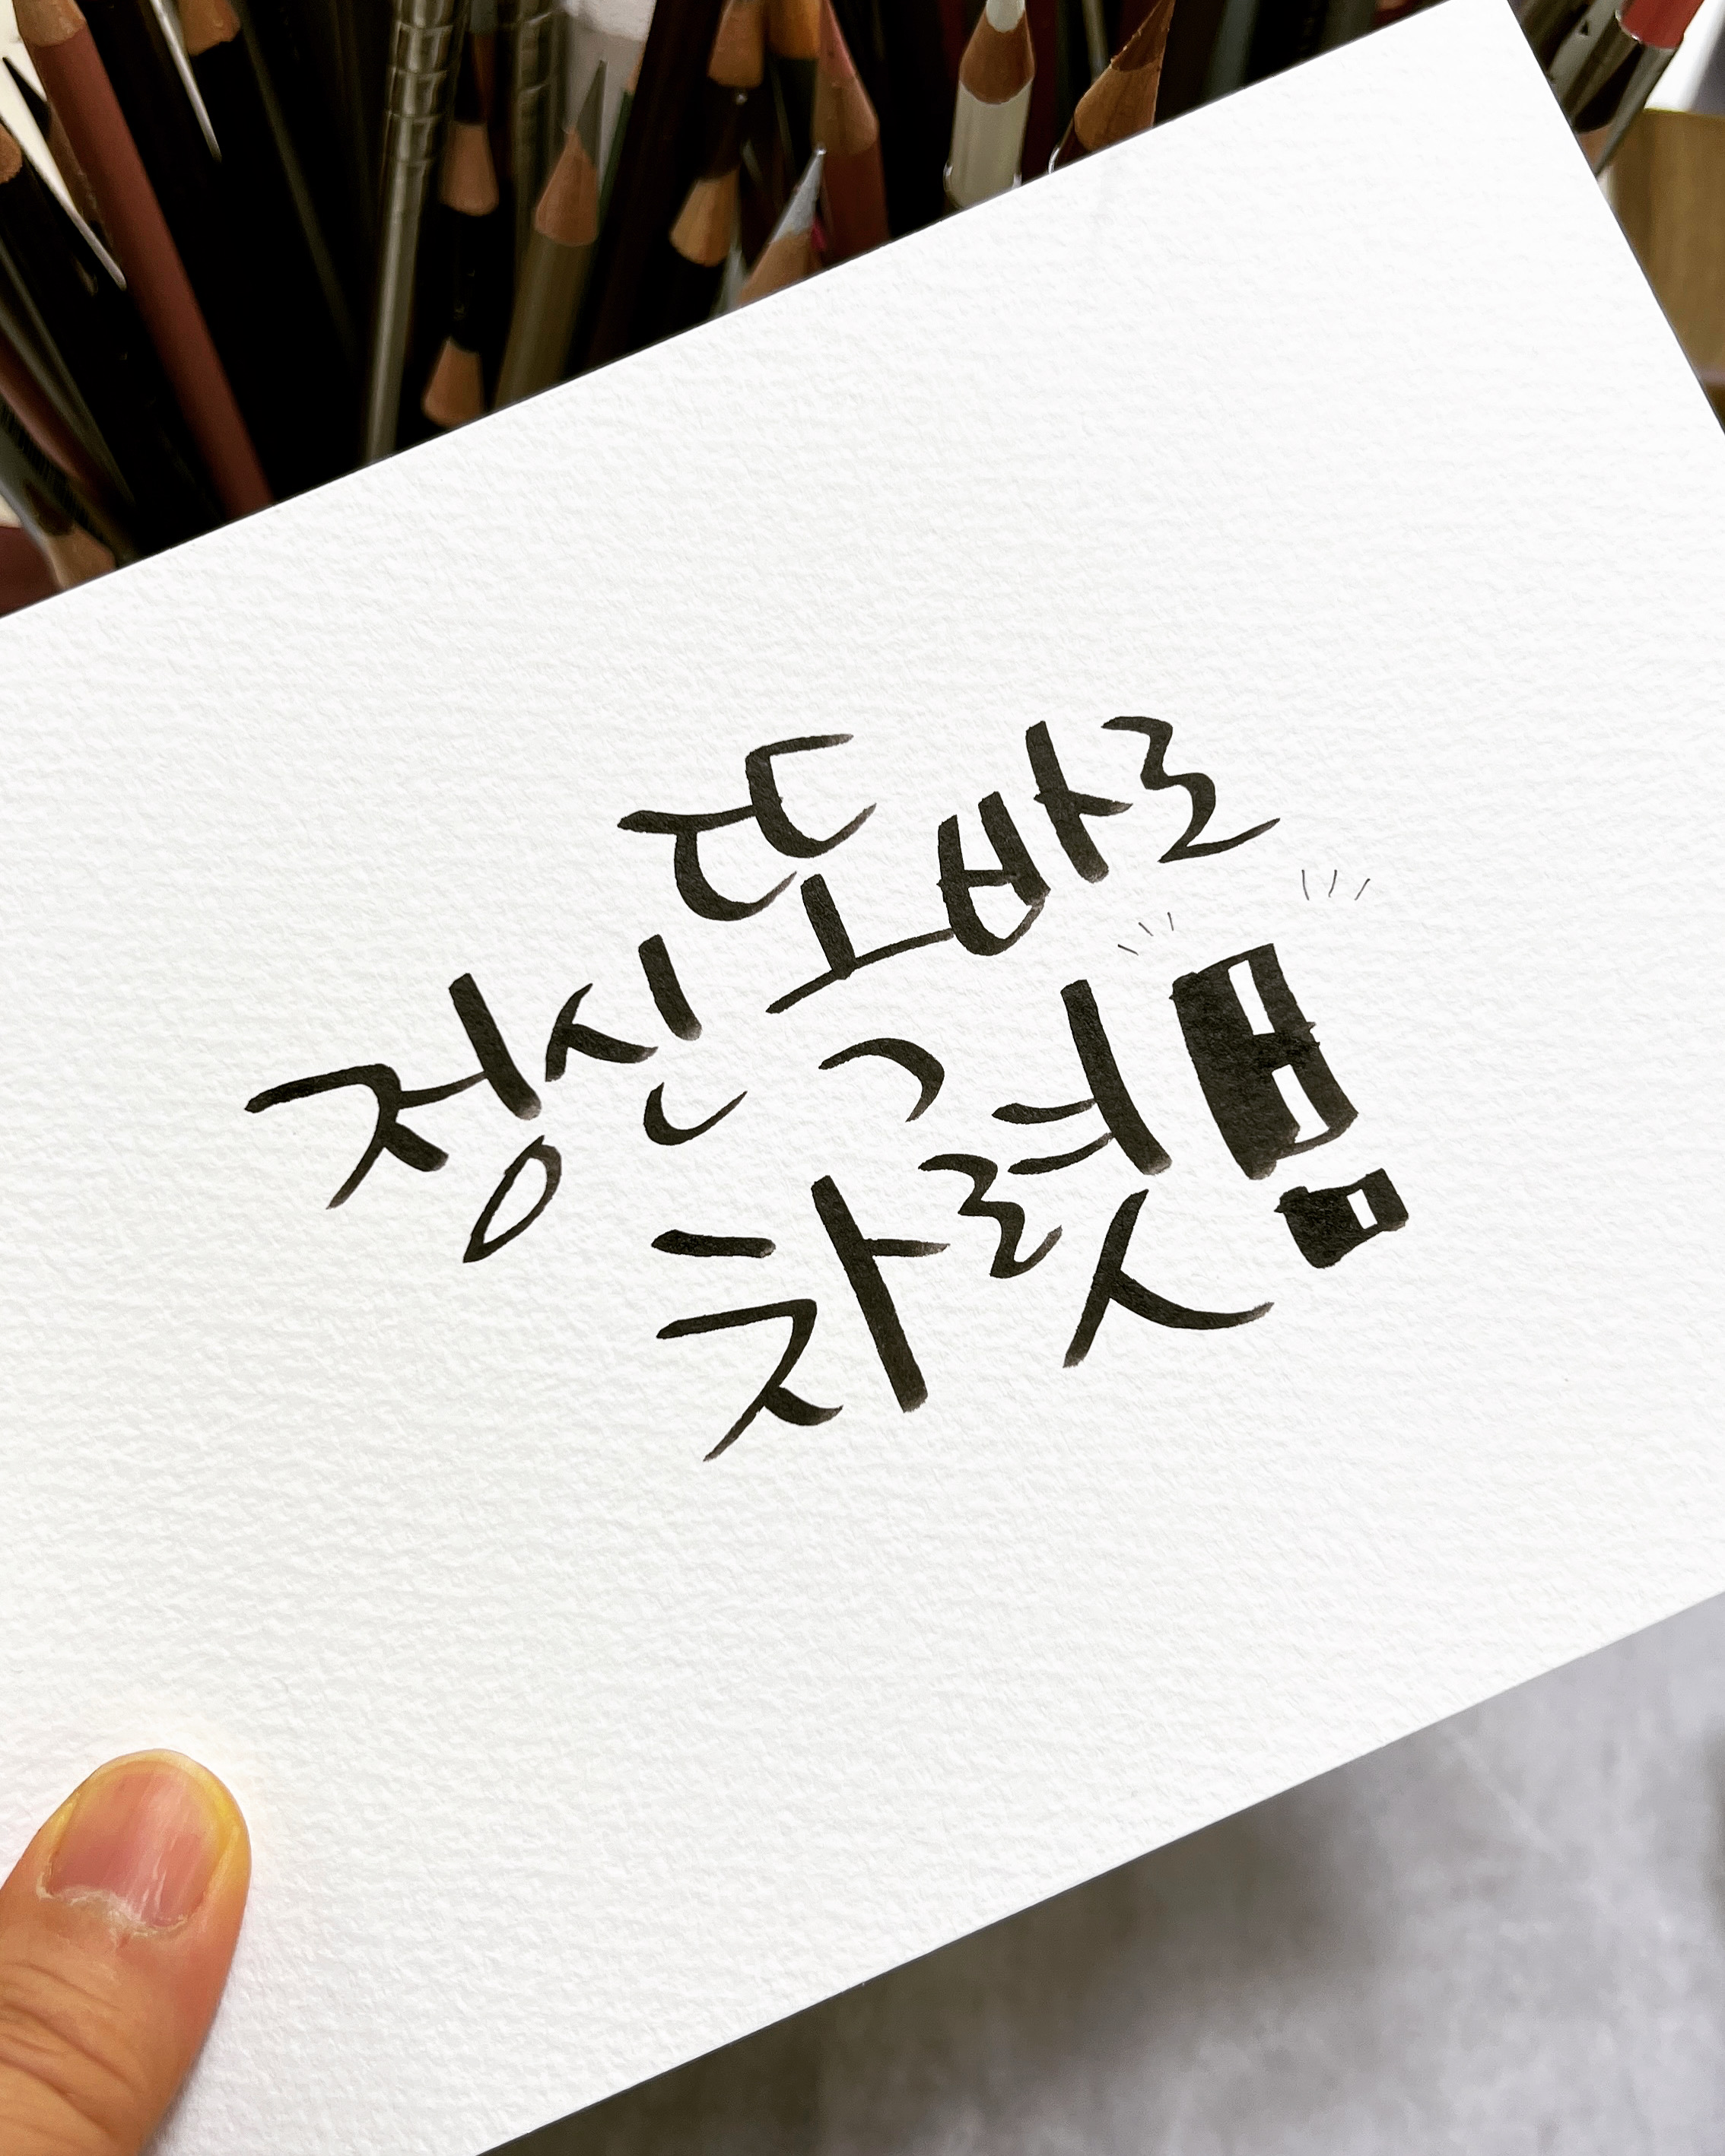 정신 똑바로
차렷!